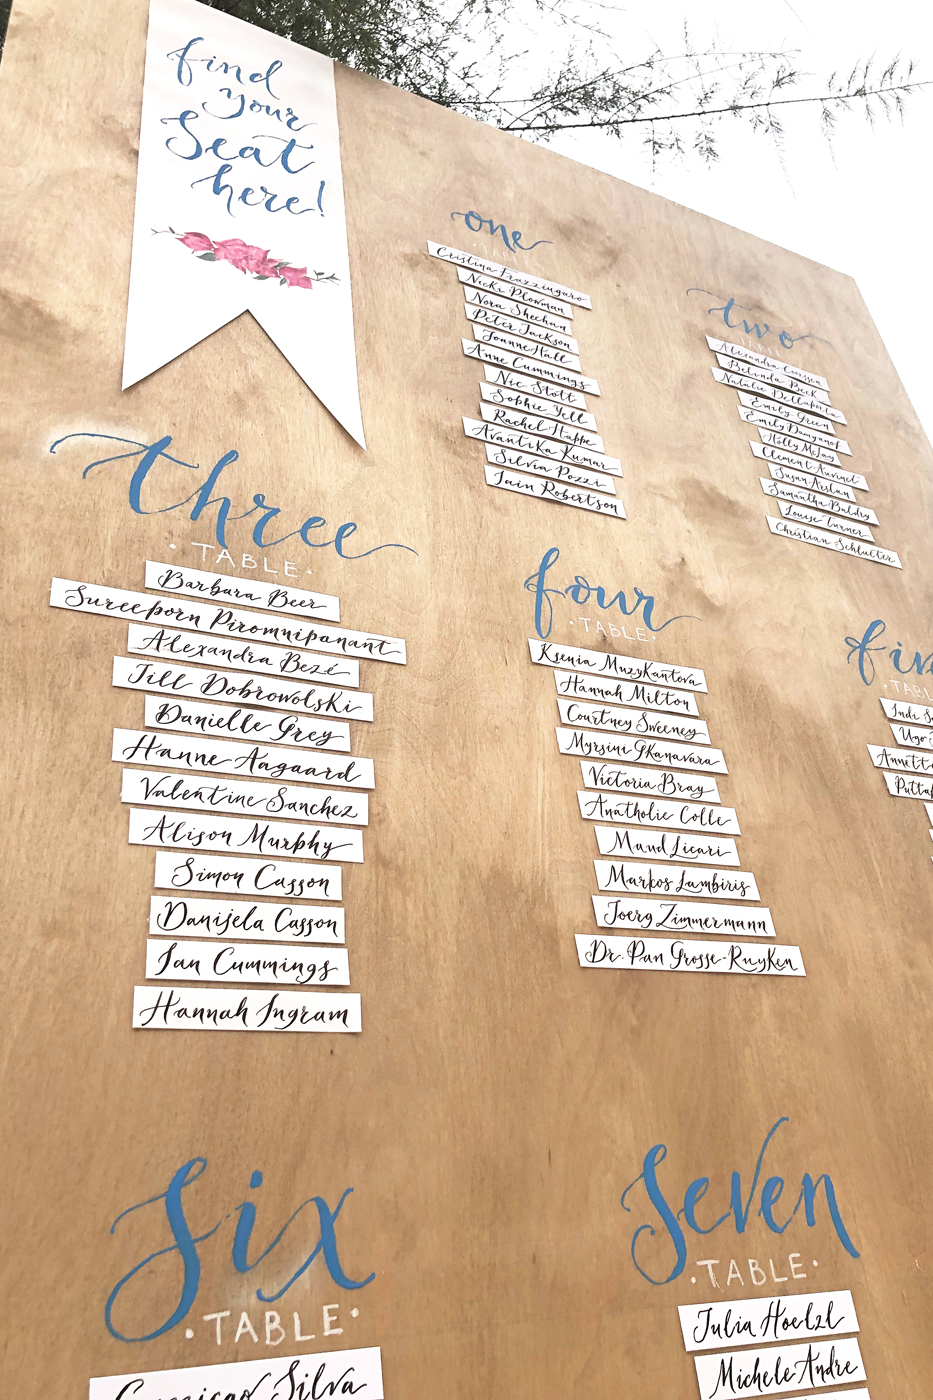 find
your
Seat
here!
one
Cristina Frazzingaro
Nicki Plowman
Nora Sheehan
Peter Jackson
Joanne Hall
Anne Cummings
Nic Stott
Sophie Yell
Rachel Happe
Avantika Kumar
Silvia Pozzi
Iain Robertson
two
Alexandra
Belinda Buck
Natalie Dellaporta
Emily Green
Emily Damyanof
Holly McLay
Clement Auvinet
Susan Arslan
Samantha Baldry
Louise Turner
Christian Schlutter
three
• TABLE •
Barbara Beer
Sureeporn Piromnipanant
Alexandra Bezé
Jill Dobrowolski
Danielle Grey
Hanne Aagaard
Valentine Sanchez
Alison Murphy
Simon Casson
Danijela Casson
Ian Cummings
Hannah Ingram
four
• TABLE •
Ksenia Muzykantova
Hannah Milton
Courtney Sweeney
Myrsini Gkanavara
Victoria Bray
Anatholie Colle
Maud Licari
Markos Lambiris
Joerg Zimmermann
Dr. Pan Grosse-Ruyken
• TABL
Indi
Ugo
Annett
six
• TABLE •
Silva
seven
• TABLE •
Julia Hoelzl
Michele Andre